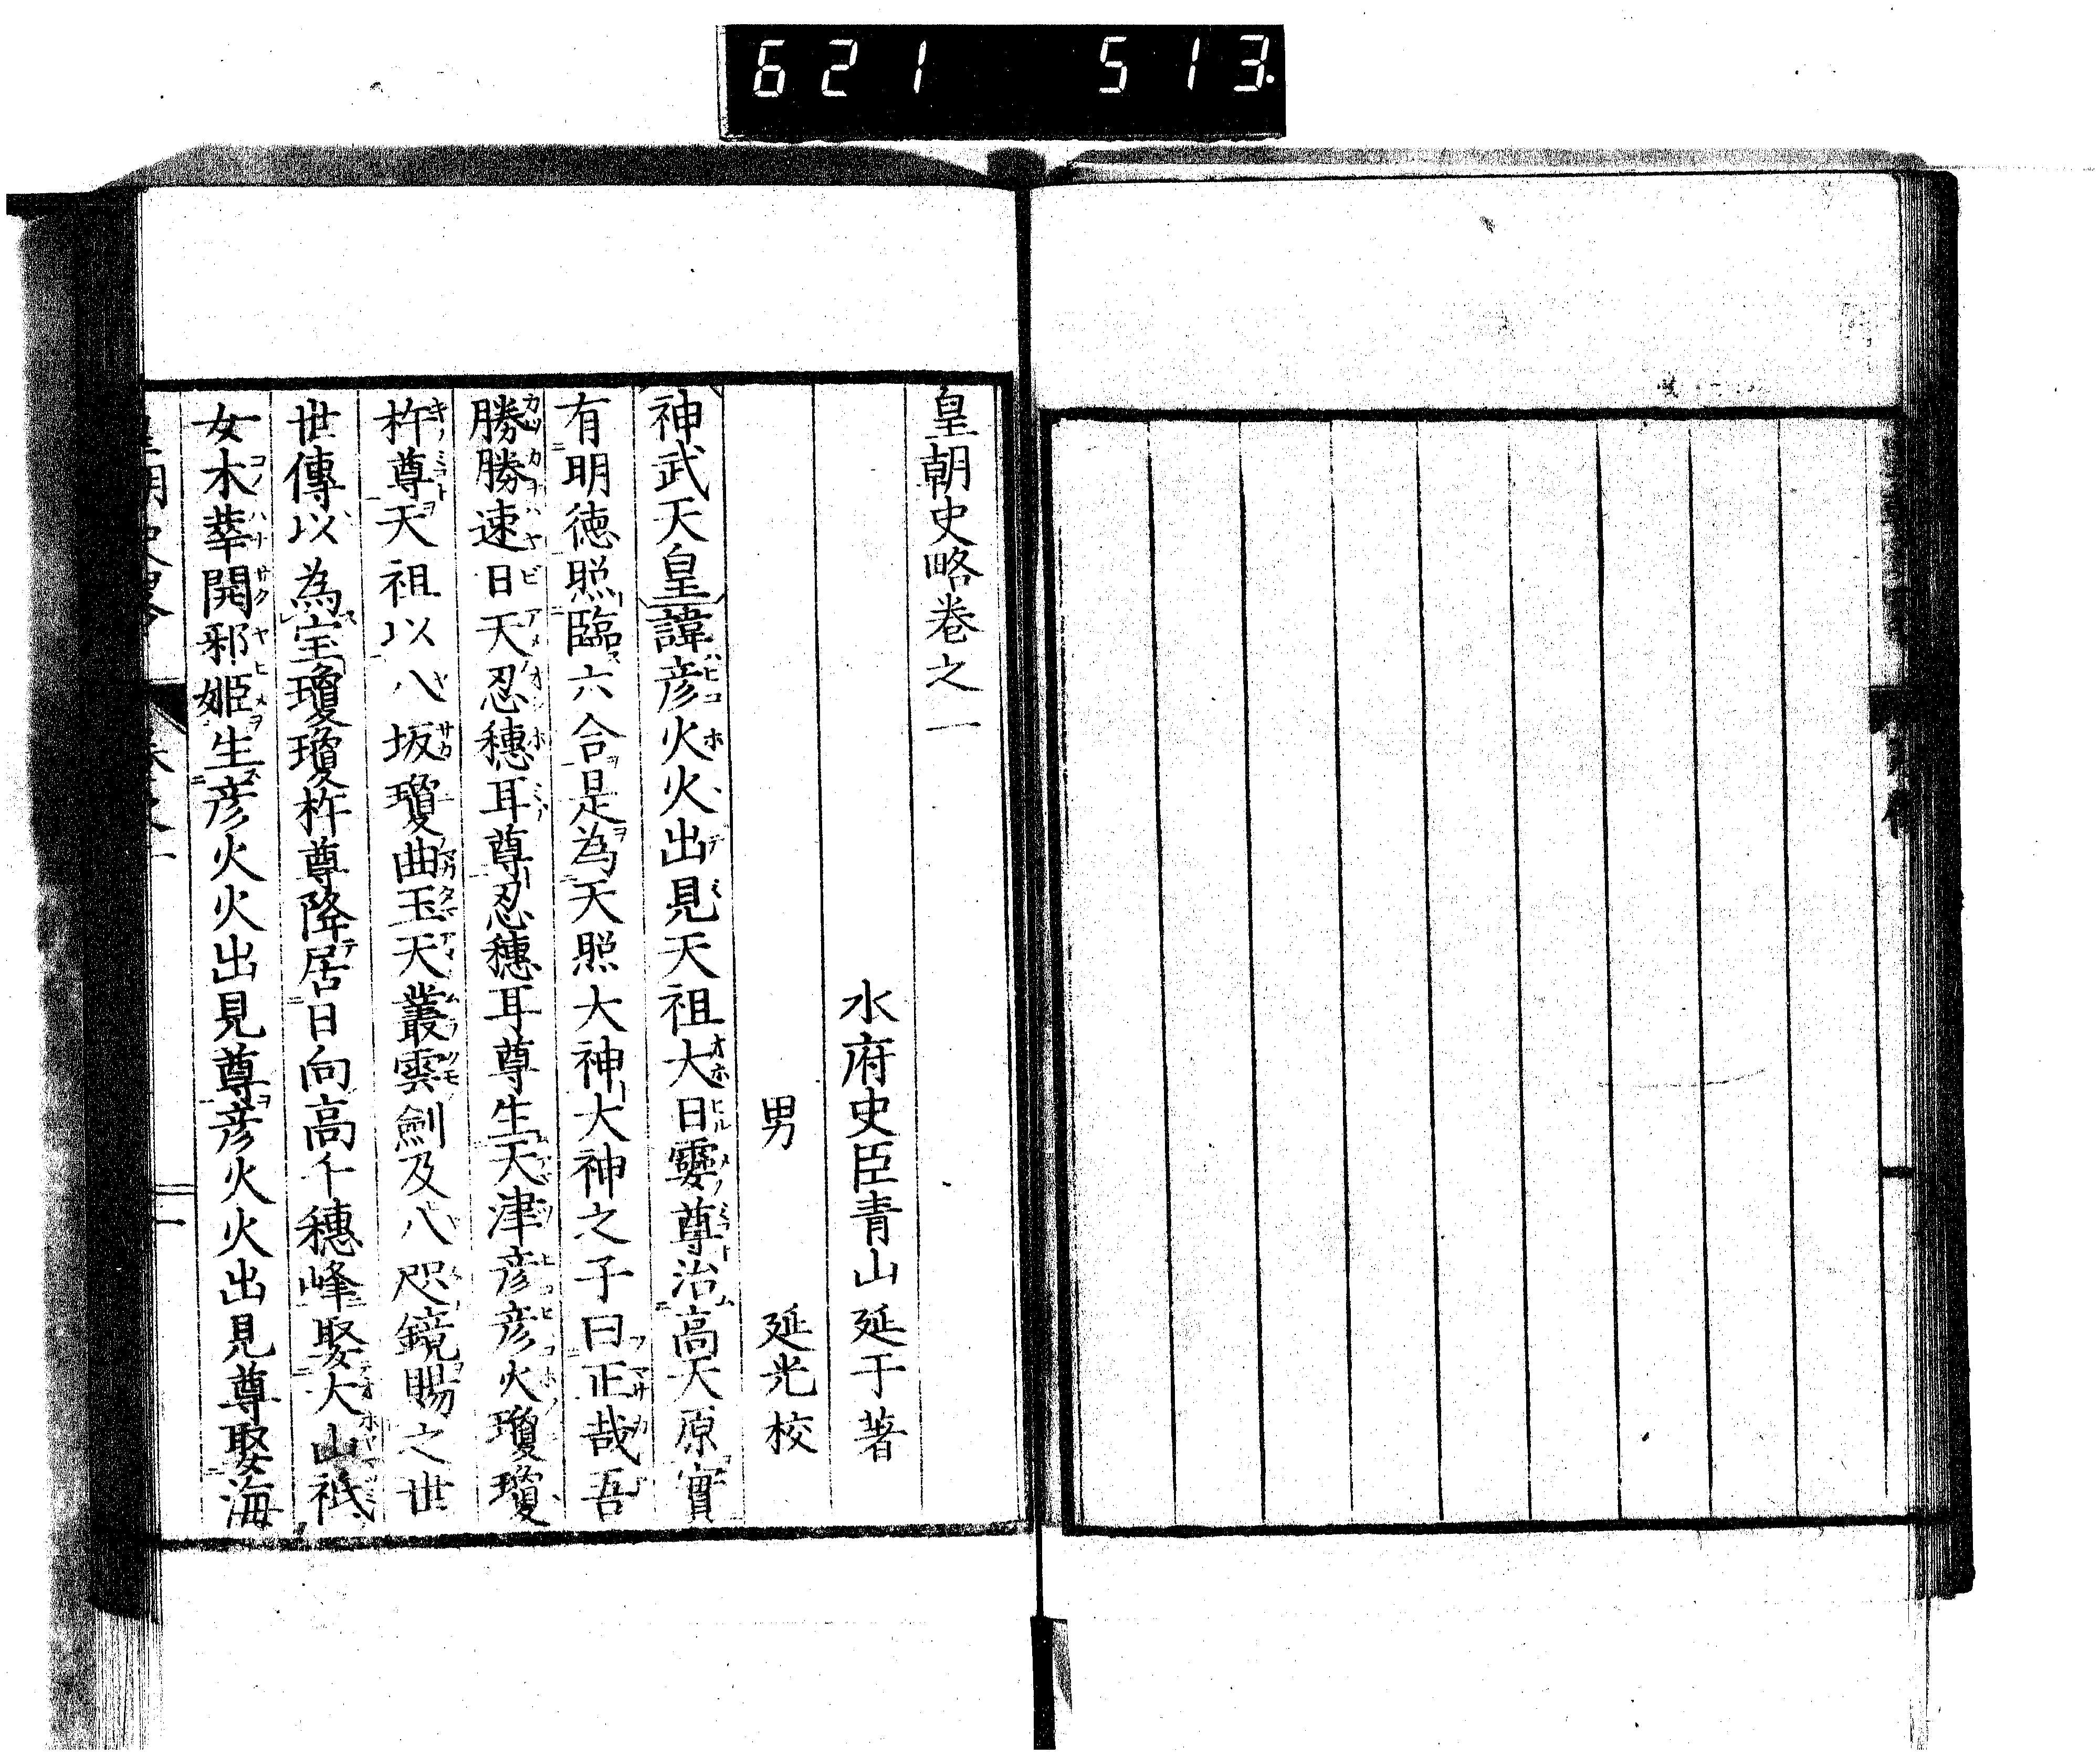 621 513.
皇朝史略卷之一
水府史臣青山延于著
男 延光校
神武天皇諱彦火火出見天祖大日孁尊治高天原實
有明徳照臨六合是為天照大神大神之子曰正哉吾
勝勝速日天忍穗耳尊忍穗耳尊生天津彦彦火瓊瓊
杵尊天祖以八坂瓊曲玉天叢雲劍及八咫鏡賜之世
世傳以為宝瓊瓊杵尊降居日向高千穗峰娶大山祇
女木華開耶姫生彦火火出見尊彦火火出見尊娶海